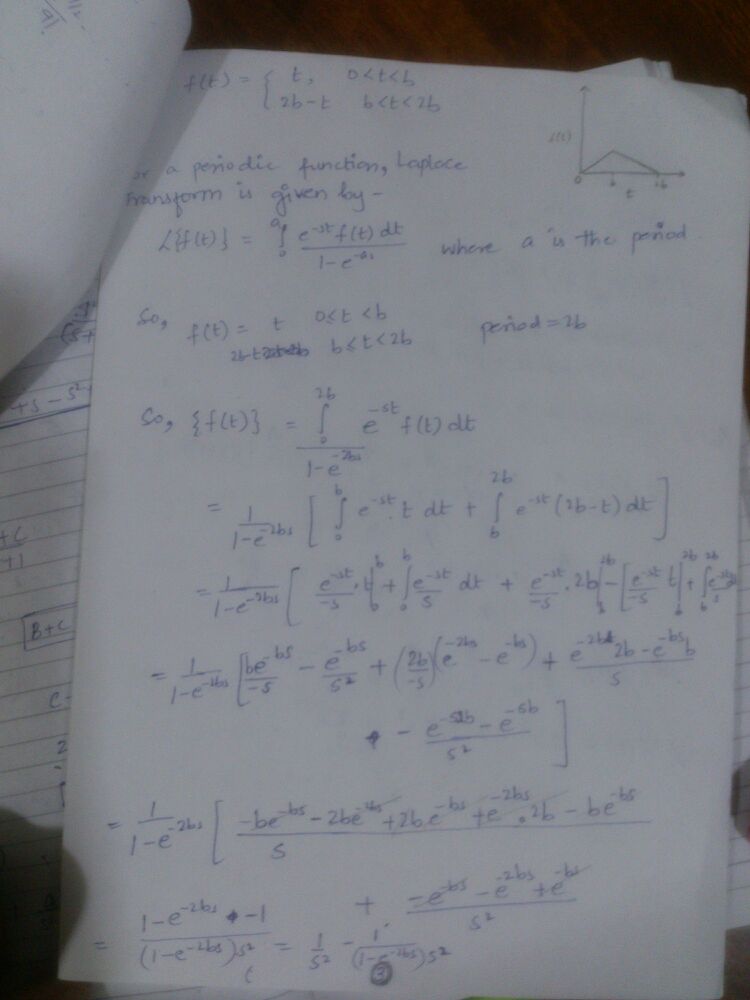 f(t) = { t, 0<t<b
2b-t b<t<2b
f(t)
0 b 2b
t
or a periodic function, Laplace
Transform is given by -
L{f(t)} = ∫₀ᵃ e^{-st} f(t) dt / 1-e^{-as} where a is the period.
So, f(t) = t 0≤t<b period = 2b
b≤t<2b
So, {f(t)} = ∫₀^{2b} e^{-st} f(t) dt / 1-e^{-2bs}
= 1/(1-e^{-2bs}) [ ∫₀ᵇ e^{-st}.t dt + ∫_b^{2b} e^{-st}(2b-t) dt ]
= 1/(1-e^{-2bs}) [ e^{-st}/-s .t|₀ᵇ + ∫₀ᵇ e^{-st}/s dt + e^{-st}/-s . 2b|_b^{2b} - [ e^{-st}/-s t|_b^{2b} + ∫_b^{2b} e^{-st}/s
= 1/(1-e^{-2bs}) [ be^{-bs}/-s - e^{-bs}/s² + (2b/-s)(e^{-2bs} - e^{-bs}) + e^{-2bs}2b - e^{-bs}b / s
- e^{-s2b} - e^{-sb} / s² ]
= 1/(1-e^{-2bs}) [ -be^{-bs} - 2be^{-2bs} + 2be^{-bs} + e^{-2bs}.2b - be^{-bs} / s
+ -e^{-bs} - e^{-2bs} + e^{-bs} / s²
= 1-e^{-2bs} -1 / (1-e^{-2bs})s² = 1/s² - 1/(1-e^{-2bs})s²
3
B+C